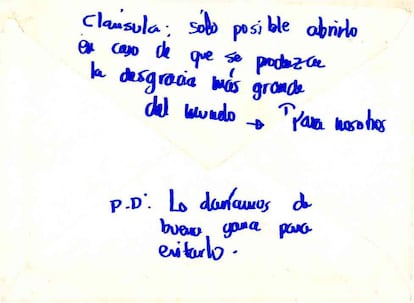 Claúsula: sólo posible abrirlo
en caso de que se produzca
la desgracia más grande
del mundo → "para nosotros
P.D: Lo daríamos de
buena gana para
evitarlo.